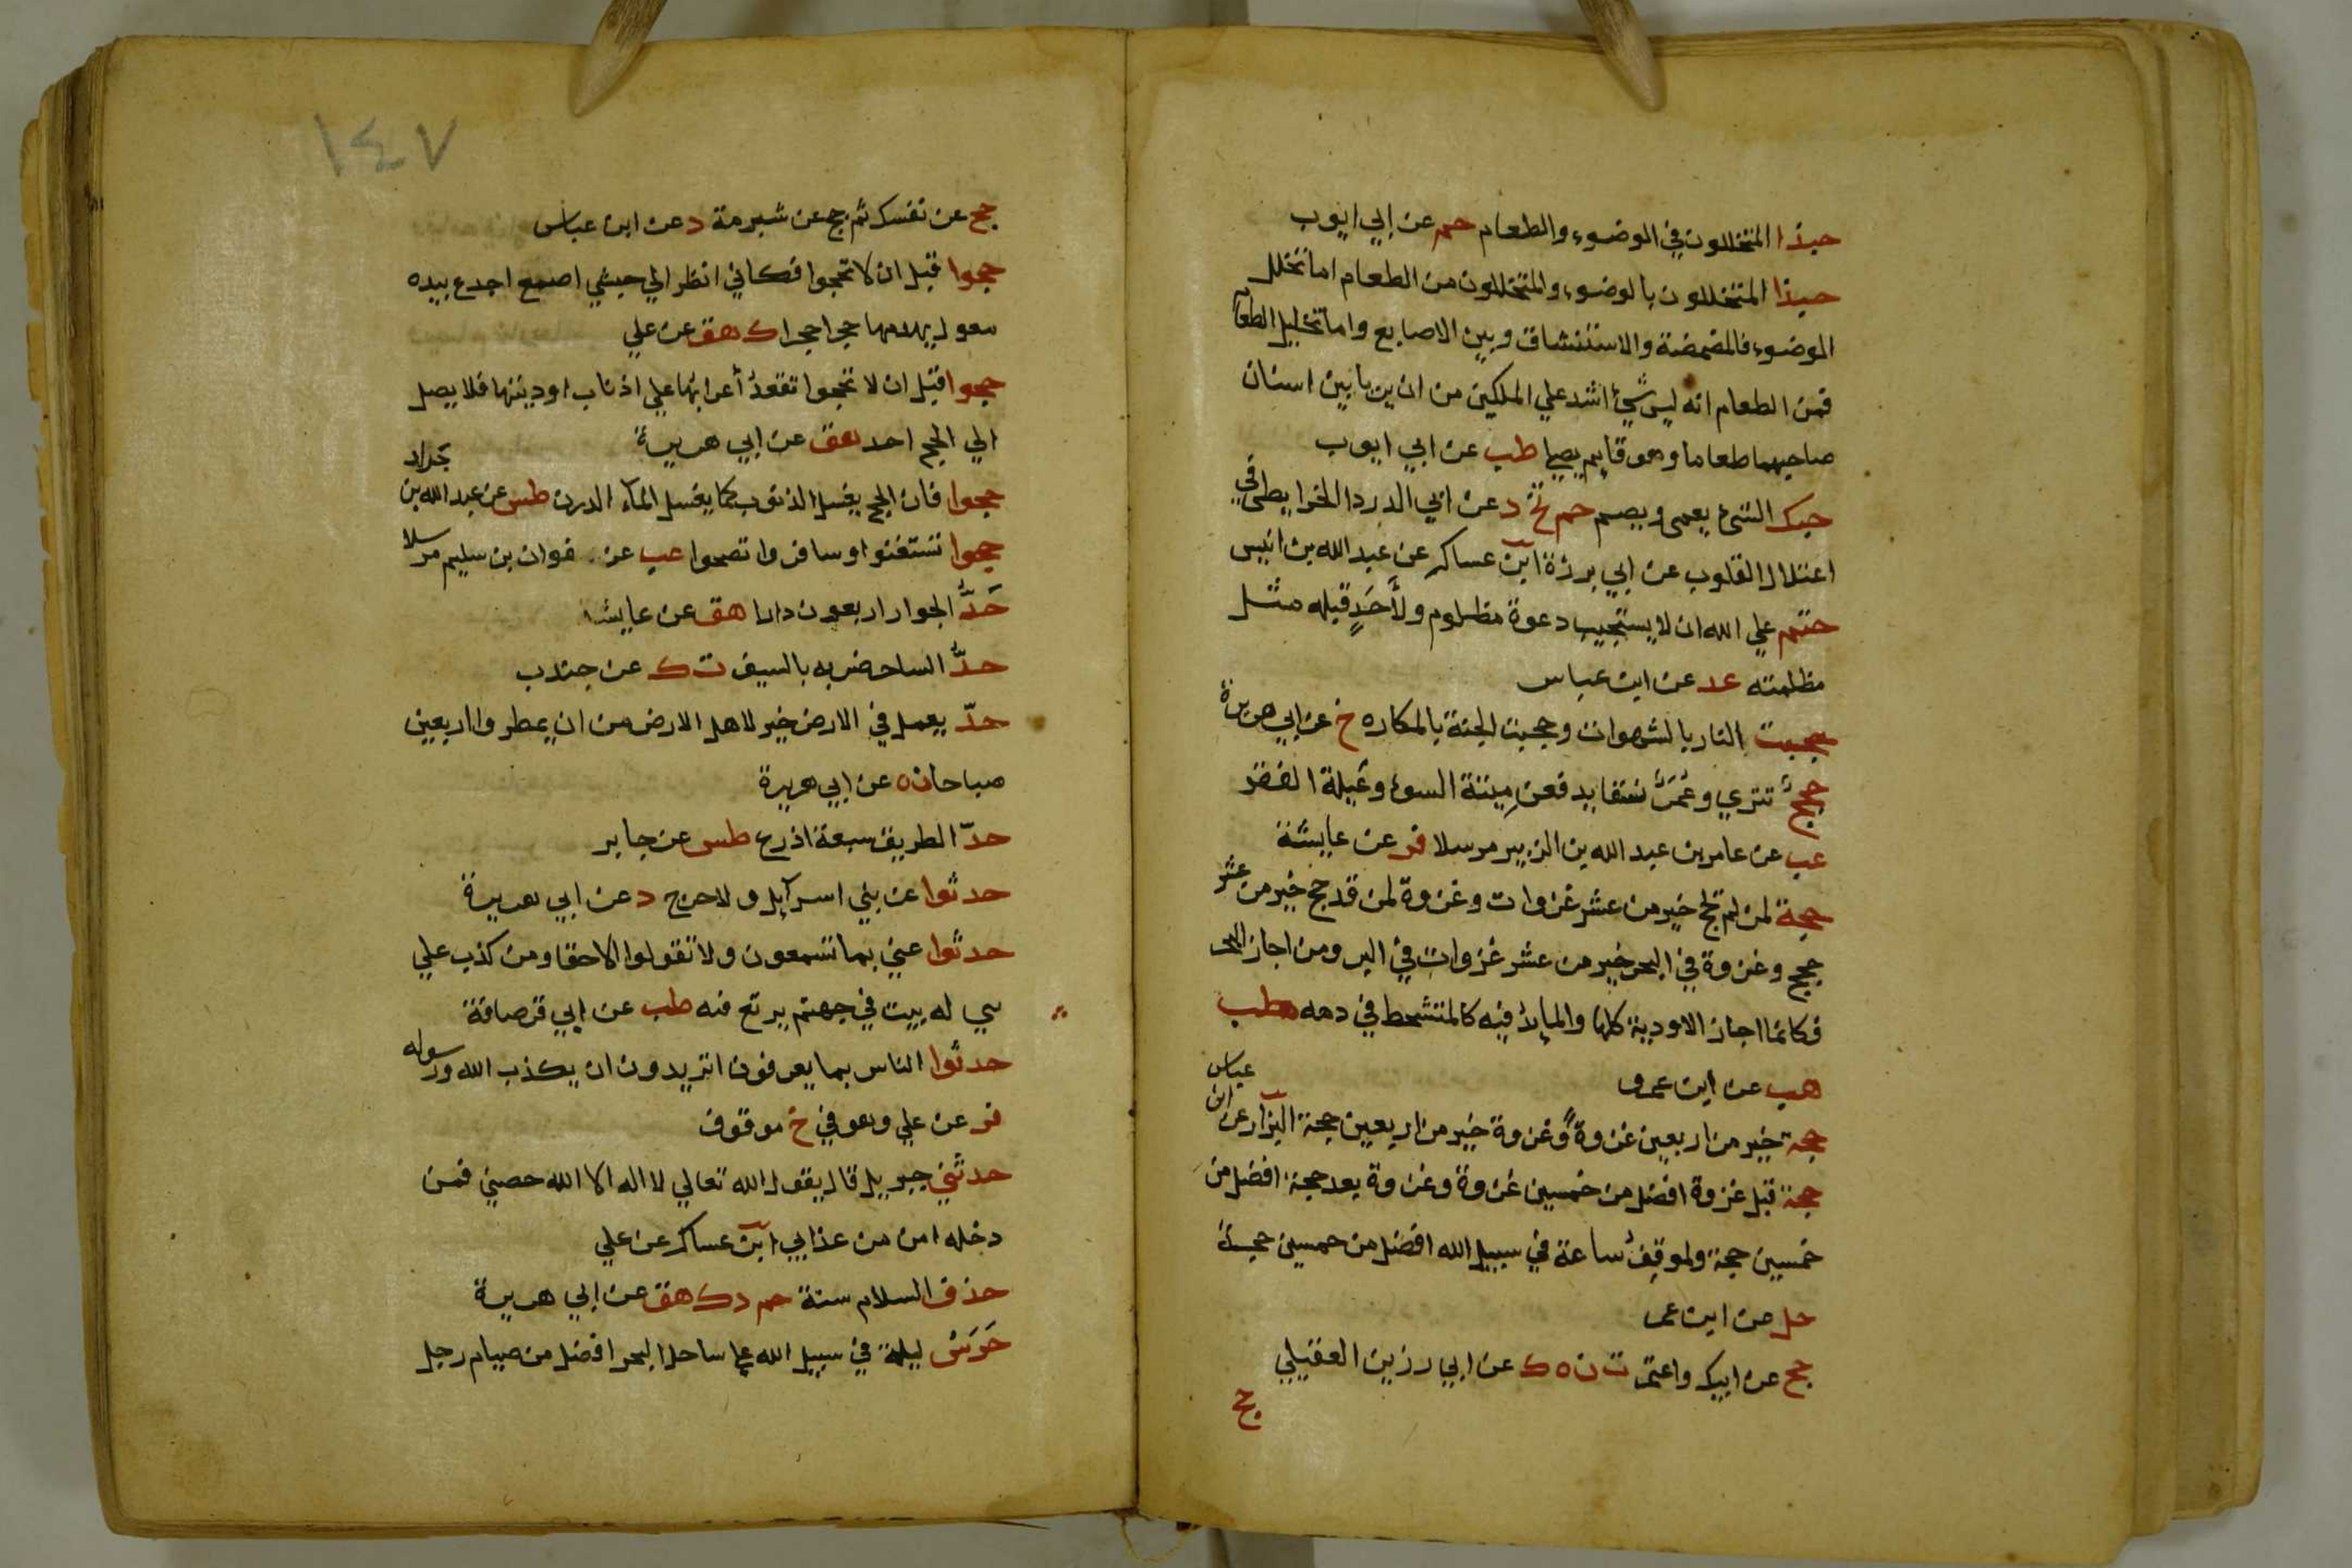 حبذا المتخللون في الوضوء والطعام حم عن ابي ايوب
حبذا المتخللون بالوضوء والمتخللون من الطعام اما تخلل
الوضوء فالمضمضة والاستنشاق وبين الاصابع واما تخليل الطعام
فمن الطعام انه ليس شيء اشد علي الملكين من ان يريا بين اسنان
صاحبهما طعاما وهو قايم يصلي طب عن ابي ايوب
حبك الشيء يعمي ويصم حم تخ د عن ابي الدردا الخرايطي في
اعتلال القلوب عن ابي برزة ابن عساكر عن عبد الله بن انيس
حتم علي الله ان لا يستجيب دعوة مظلوم ولأحد قبله مثل
مظلمته عد عن ابن عباس
حجبت النار بالشهوات وحجبت الجنة بالمكاره خ عن ابي هريرة
حجج تتري وعمر نسقا يدفعن ميتة السوء وعيلة الفقر
عب عن عامر بن عبد الله بن الزبير مرسلا فر عن عايشة
حجة لمن لم يحج خير من عشر غزوات وغزوة لمن قد حج خير من عشر
حجج وغزوة في البحر خير من عشر غزوات في البر ومن اجاز البحر
فكانما اجاز الاودية كلها والمايد فيه كالمتشحط في دمه طب
هب عن ابن عمرو
حجة خير من اربعين غزوة وغزوة خير من اربعين حجة البزار عن ابن عباس
حجة قبل غزوة افضل من خمسين غزوة وغزوة بعد حجة افضل من
خمسين حجة ولموقف ساعة في سبيل الله افضل من خمسين حجة
حل عن ابن عمر
حج عن ابيك واعتمر ت ن ه ك عن ابي رزين العقيلي
حج
١٤٧
حج عن نفسك ثم حج عن شبرمة د عن ابن عباس
حجوا قبل ان لا تحجوا فكاني انظر الي حبشي اصمع اجدع بيده
معول يهدمها حجرا حجرا ك هق عن علي
حجوا قبل ان لا تحجوا تقعد أعرابها علي اذناب اوديتها فلا يصل
الي الحج احد هق عن ابي هريرة
حجوا فان الحج يغسل الذنوب كما يغسل الماء الدرن طس عن عبد الله بن جراد
حجوا تستغنوا وسافروا تصحوا عب عن صفوان بن سليم مرسلا
حَدُّ الجوار اربعون دارا هق عن عايشة
حدُّ الساحر ضربه بالسيف ت ك عن جندب
حدّ يعمل في الارض خير لاهل الارض من ان يمطروا اربعين
صباحا ن ه عن ابي هريرة
حدّ الطريق سبعة اذرع طس عن جابر
حدثوا عن بني اسرآيل ولا حرج د عن ابي هريرة
حدثوا عني بما تسمعون ولا تقولوا الا حقا ومن كذب علي
بني له بيت في جهنم يرتع فيه طب عن ابي قرصافة
حدثوا الناس بما يعرفون اتريدون ان يكذب الله ورسوله
فر عن علي وهو في خ موقوف
حدثني جبريل قال يقول الله تعالي لا اله الا الله حصني فمن
دخله امن من عذابي ابن عساكر عن علي
حذف السلام سنة حم د ك هق عن ابي هريرة
حَرَسُ ليلة في سبيل الله علي ساحل البحر افضل من صيام رجل